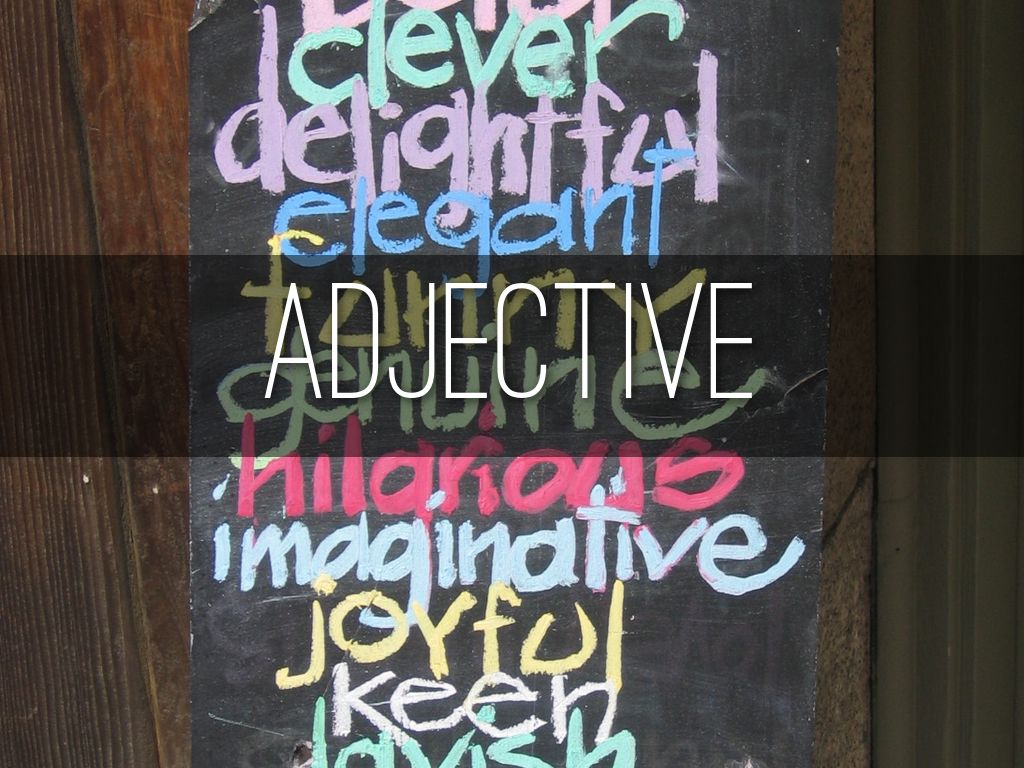 clever
delightful
elegant
funny
ADJECTIVE
genuine
hilarious
imaginative
joyful
keen
lavish